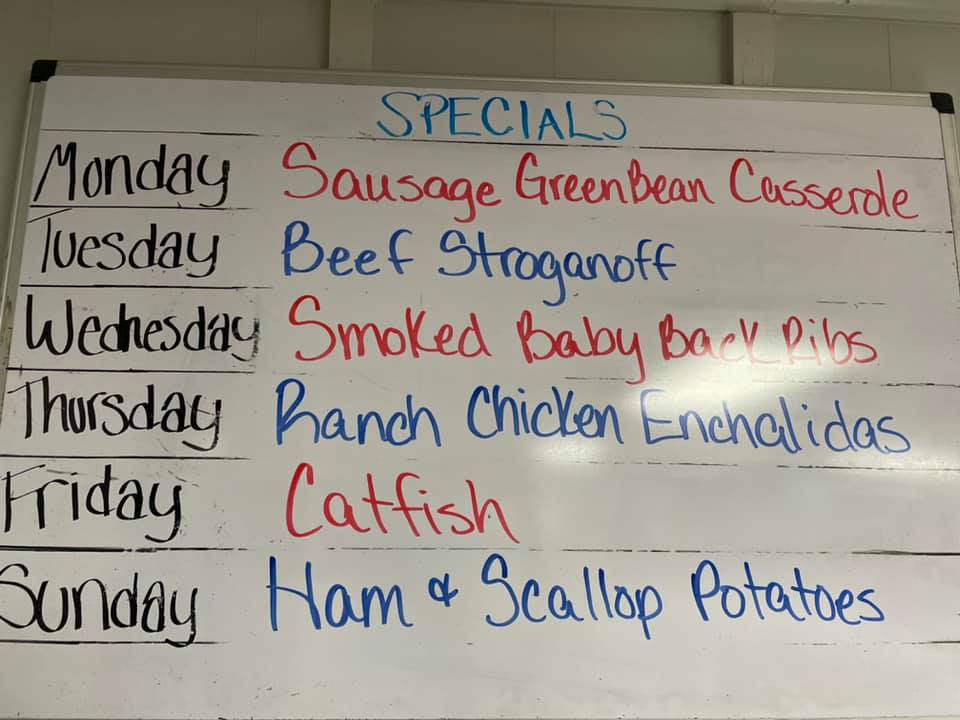 SPECIALS
Monday Sausage GreenBean Casserole
Tuesday Beef Stroganoff
Wednesday Smoked Baby Back Ribs
Thursday Ranch Chicken Enchalidas
Friday Catfish
Sunday Ham & Scallop Potatoes